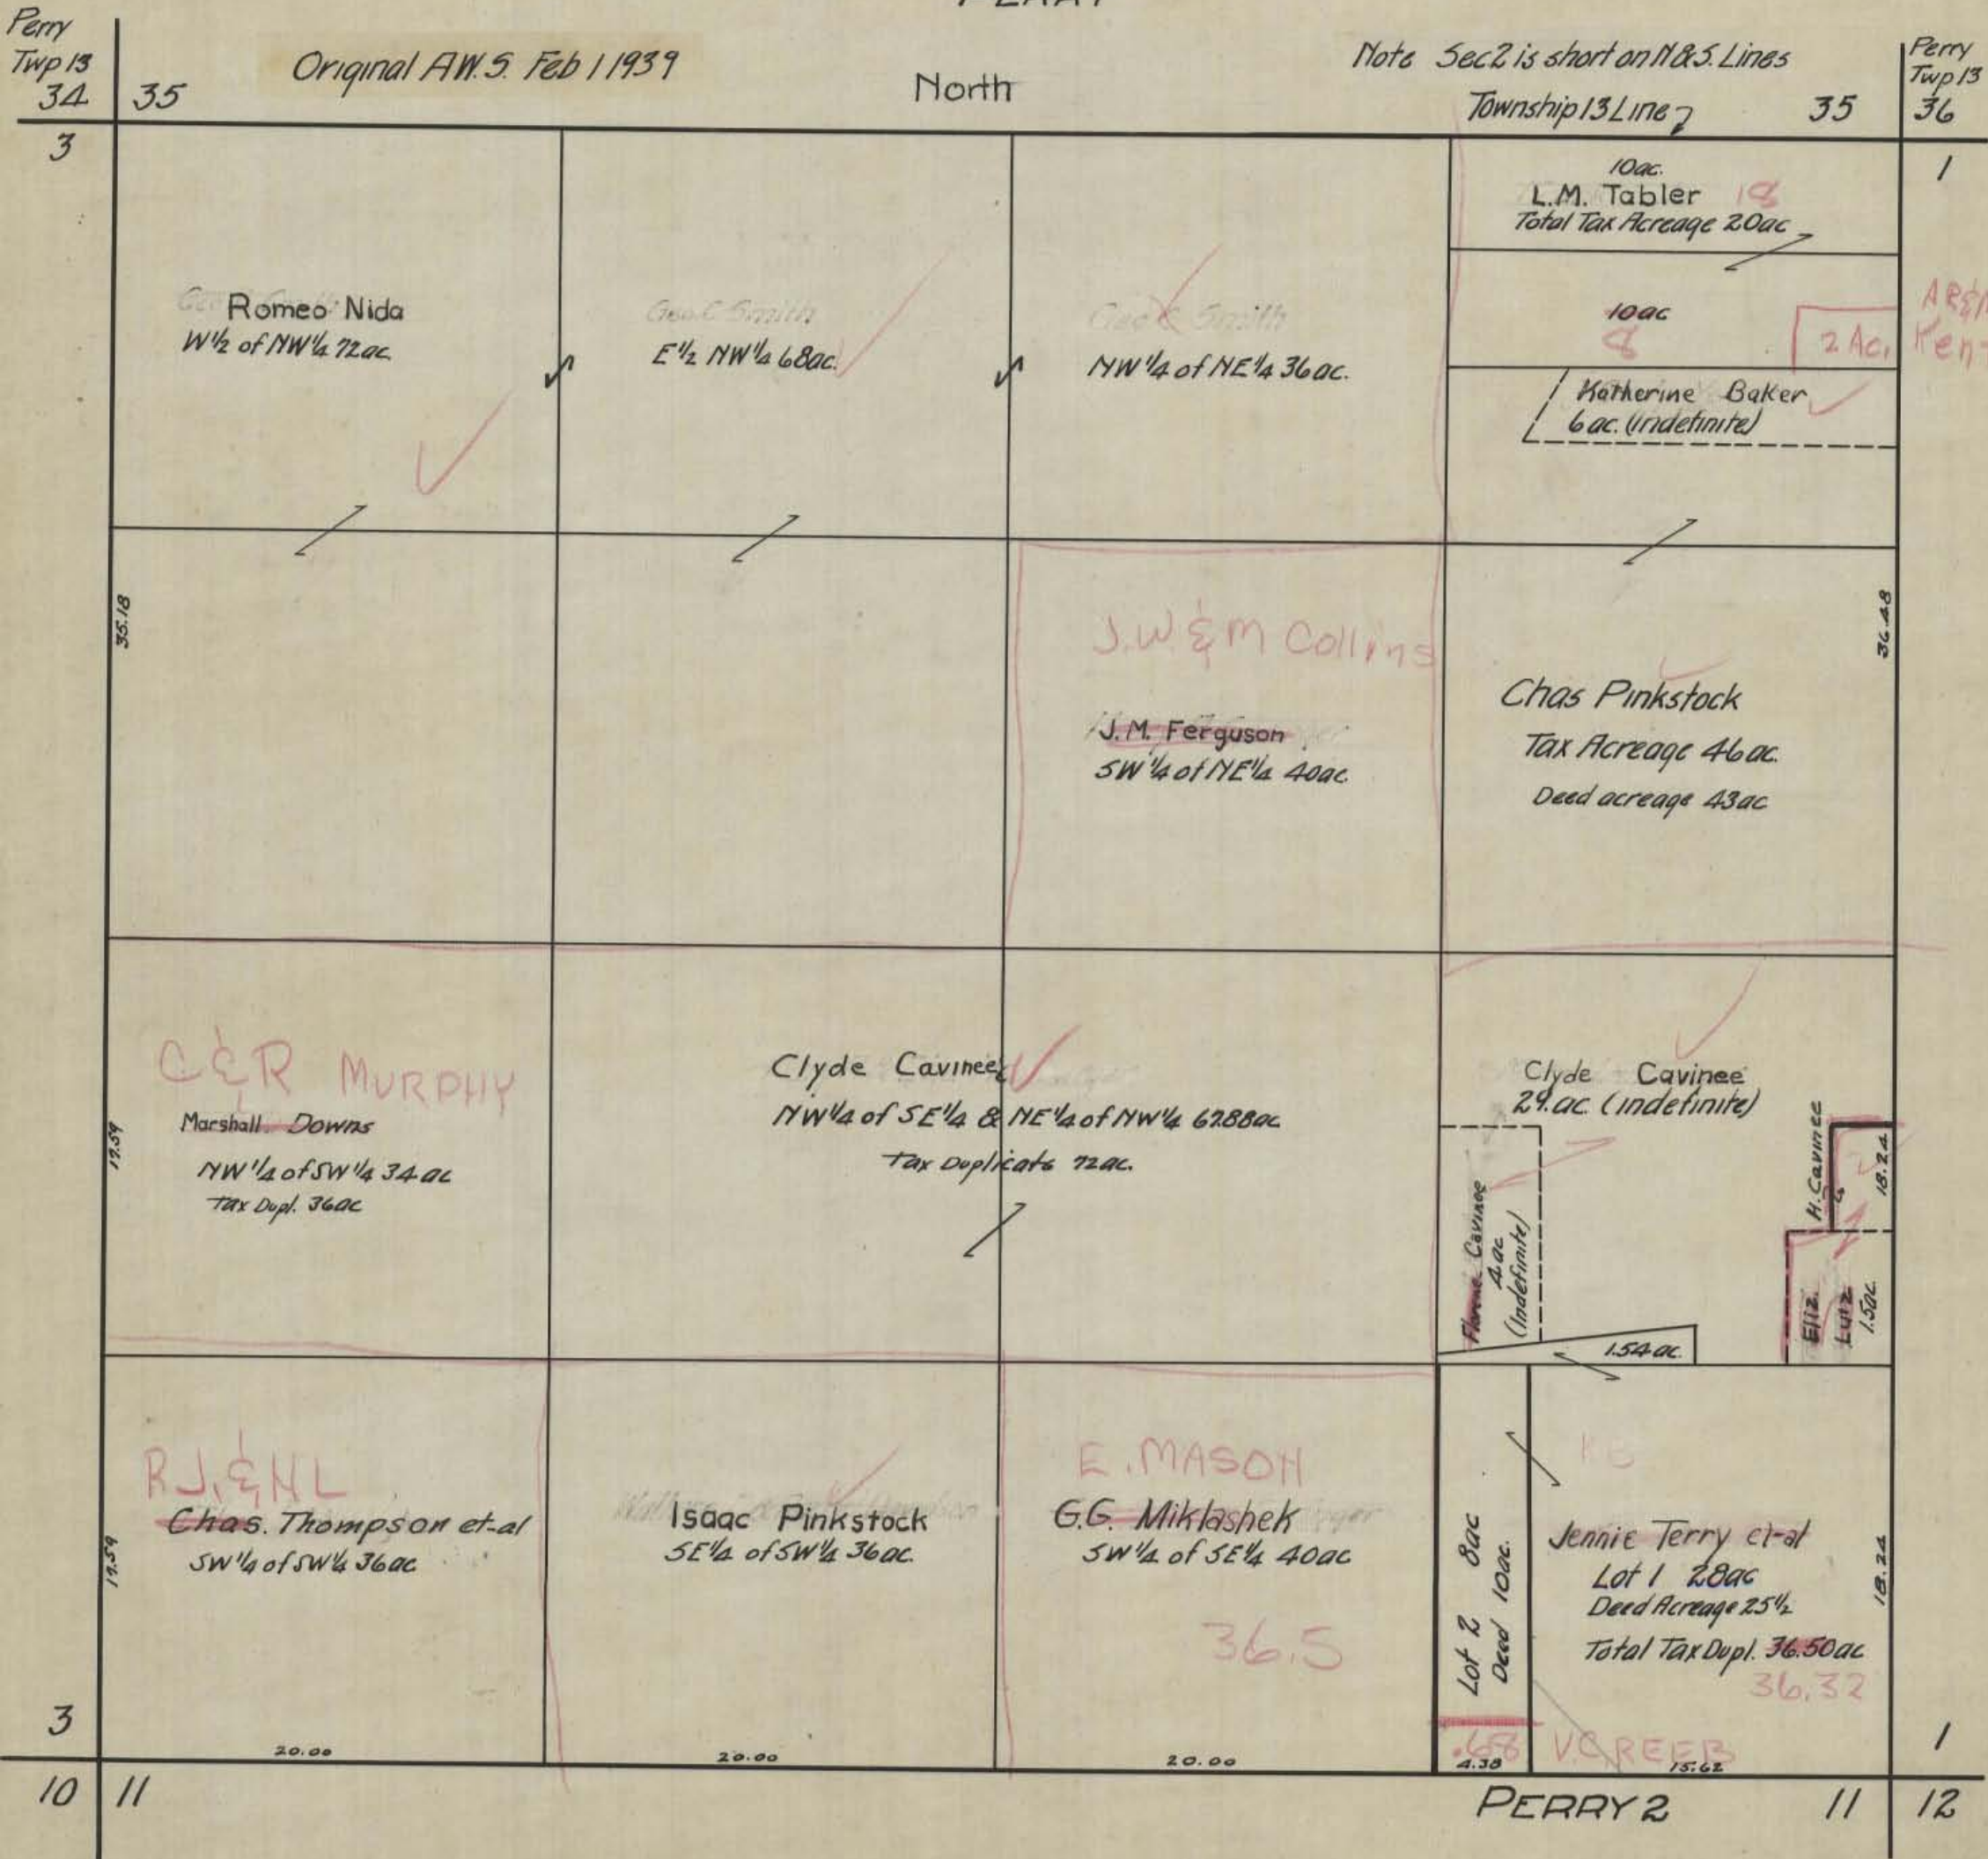 Perry
Twp 13
34
35
Original A.W.S. Feb 1 1939
North
Note Sec 2 is short on N & S. Lines
Township 13 Line
35
Perry
Twp 13
36
3
1
Romeo Nida
W 1/2 of NW 1/4 72 ac.
Geo C Smith
E 1/2 NW 1/4 68 ac.
Geo C Smith
NW 1/4 of NE 1/4 36 ac.
10 ac.
L.M. Tabler 18
Total Tax Acreage 20 ac
10 ac
8
2 Ac.
Katherine Baker
6 ac. (Indefinite)
35.18
36.48
J.W. & M Collins
J.M. Ferguson
SW 1/4 of NE 1/4 40 ac.
Chas Pinkstock
Tax Acreage 46 ac.
Deed acreage 43 ac
C & R MURPHY
Marshall Downs
NW 1/4 of SW 1/4 34 ac
Tax Dupl. 36 ac
17.59
Clyde Cavinee
NW 1/4 of SE 1/4 & NE 1/4 of NW 1/4 67.88 ac
Tax Duplicate 72 ac.
Clyde Cavinee
29. ac. (indefinite)
Cavinee
4 ac
(Indefinite)
H. Cavinee
18.24
Eliz.
Lutz
1.5 ac.
1.54 ac.
R.J. & N L
Chas. Thompson et-al
SW 1/4 of SW 1/4 36 ac
17.59
Isaac Pinkstock
SE 1/4 of SW 1/4 36 ac.
E. MASON
G.G. Miklashek
SW 1/4 of SE 1/4 40 ac
36.5
Lot 2 8 ac
Deed 10 ac.
Jennie Terry et-al
Lot 1 28 ac
Deed Acreage 25 1/2
Total Tax Dupl. 36.50 ac
36.32
18.24
.68
V. CREEB
3
20.00
20.00
20.00
4.38
15.62
1
10
11
PERRY 2
11
12